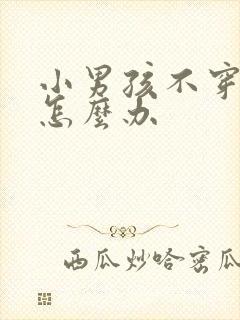 小男孩不穿
怎麼办
西瓜炒哈密瓜